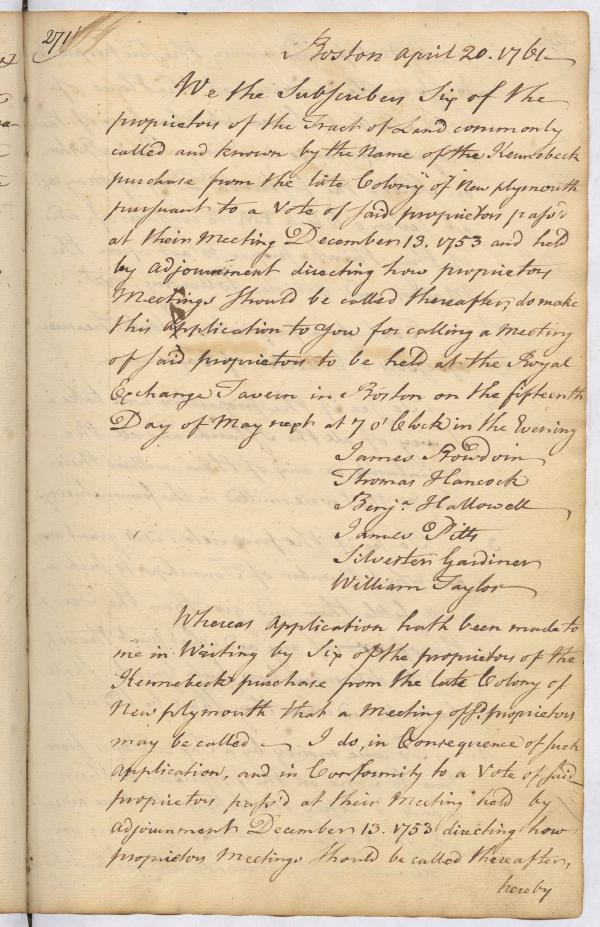 271
Boston April 20. 1761
We the Subscribers Six of the
proprietors of the Tract of Land commonly
called and known by the Name of the Kennebeck
purchase from the late Colony of New plymouth
pursuant to a Vote of said proprietors pass'd
at their Meeting December 13. 1753 and held
by adjournment directing how proprietors
Meetings Should be called thereafter, do make
this Application to You for calling a Meeting
of said proprietors to be held at the Royal
Exchange Tavern in Boston on the fifteenth
Day of May next at 7 o'Clock in the Evening
James Bowdoin
Thomas Hancock
Benj.ª Hallowell
James Pitts
Silvester Gardiner
William Taylor
Whereas Application hath been made to
me in Writing by Six of the proprietors of the
Kennebeck purchase from the late Colony of
New plymouth that a Meeting of s.d proprietors
may be called — I do, in Consequence of such
Application, and in Conformity to a Vote of said
proprietors pass'd at their Meeting held by
adjournment December 13. 1753 directing how
proprietors Meetings Should be called thereafter,
hereby